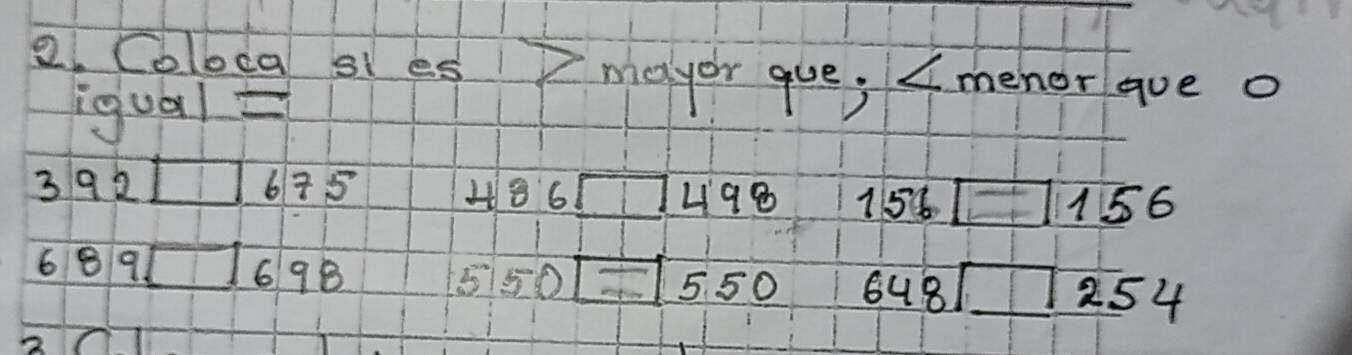 2. Coloca si es > mayor que; < menor que o
igual =
392 □ 675 486 □ 498 156 = 156
689 □ 698 550 = 550 648 □ 254